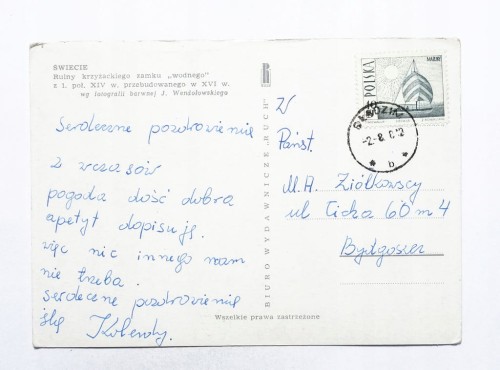 ŚWIECIE
Ruiny krzyżackiego zamku „wodnego"
z 1. poł. XIV w. przebudowanego w XVI w.
wg fotografii barwnej J. Wendołowskiego
Serdeczne pozdrowienia
z wczasów
pogoda dość dobra
apetyt dopisuję.
więc nic innego nam
nie trzeba.
serdecene pozdrowienia
ślą Kolendy.
BIURO WYDAWNICZE „RUCH"
RUCH
Wszelkie prawa zastrzeżone
POLSKA
MAIDRY
b
W
Państ.
M.A. Ziółkowscy
ul Cicha 60 m 4
Bydgoszcz